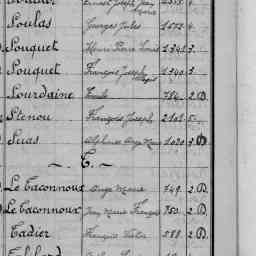 Ernest Joseph Jean Marie
Soulas Georges Jules 1572 4
Souquet Henri Pierre Louis 1341 3
Souquet François Joseph 1340 3
Sourdaine Emile 784 2 D
Stenou François Joseph 2108 5
Suas Alphonse Ange Marie 1030 3 D
~ T. ~
Le Taconnoux Ange Marie 749 2 D
Le Taconnoux Jean Marie François 750 2 D
Tadier François Victor 588 2 D